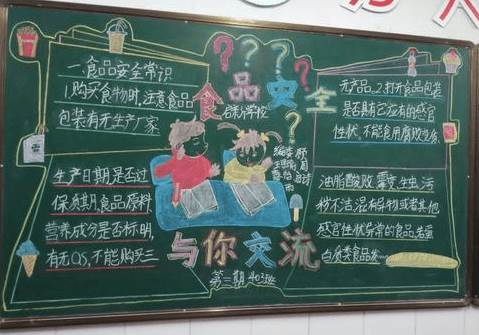 一.食品安全常识
1.购买食物时,注意食品
包装有无生产厂家
生产日期是否过
保质期,食品原料
营养成分是否标明,
有无QS,不能购买三
食品安全
与你交流
第三期 403班
无产品。2.打开食品包装
是否具它应有的感官
性状,不能食用腐败变质
油脂酸败、霉变、生虫、污
秽不洁,混有异物或者其他
感官性状异常的食品,若蛋
白质类食品发